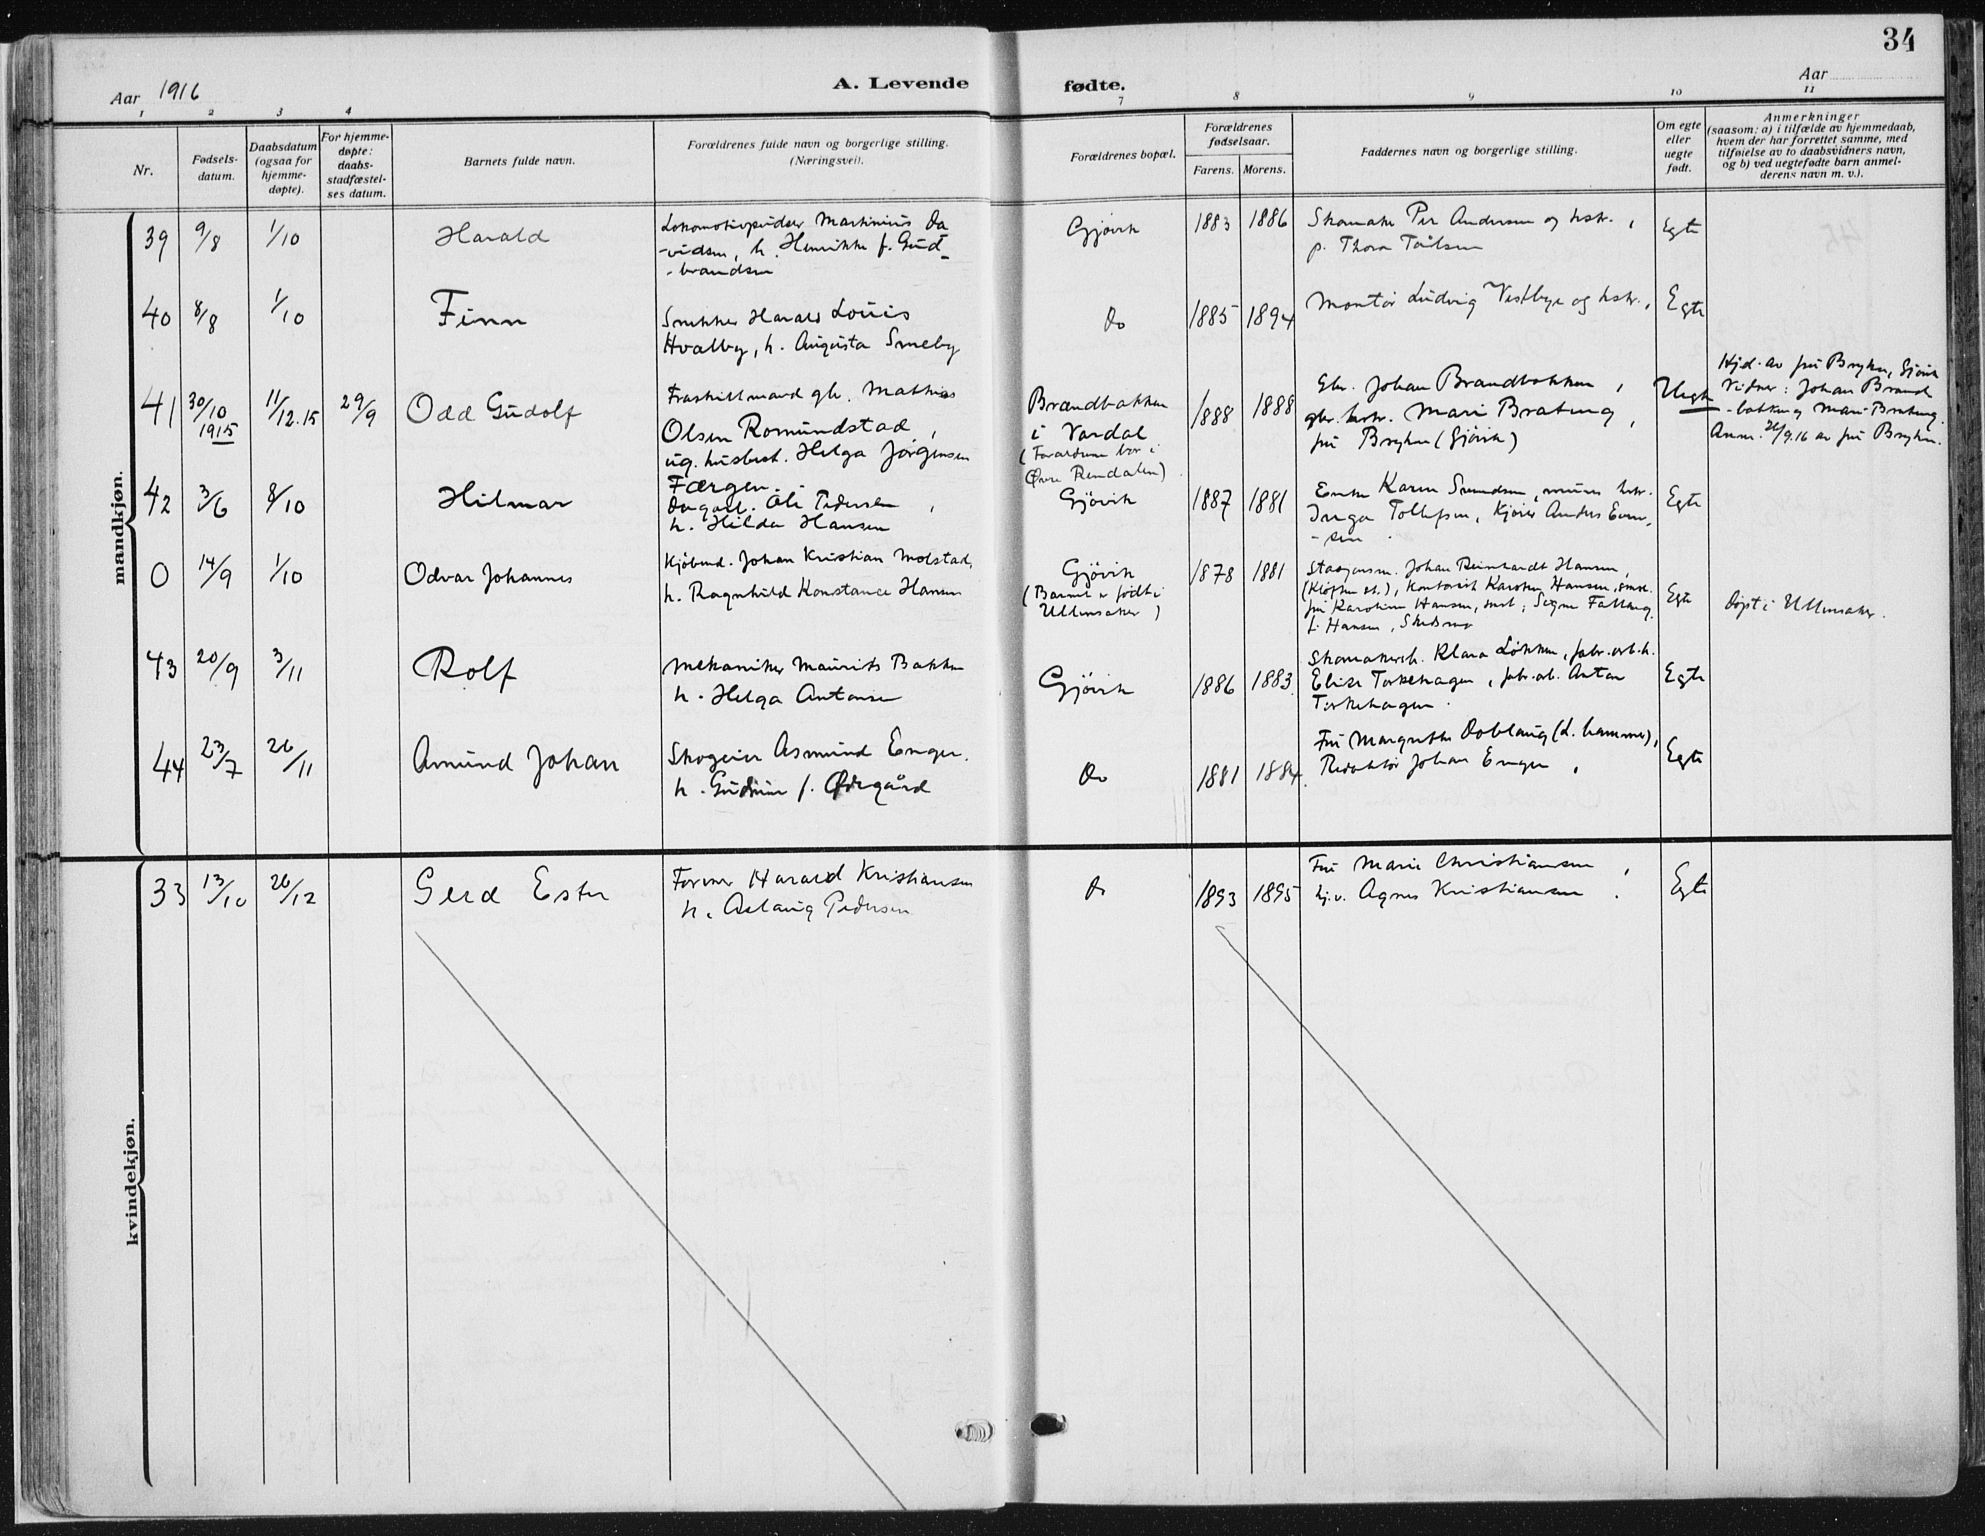 34
Aar 1916
A. Levende fødte.
Aar
1 2 3 4 7 8 9 10 11
Nr.
Fødsels-
datum.
Daabsdatum
(ogsaa for
hjemme-
døpte).
For hjemme-
døpte:
daabs-
stadfæstel-
ses datum.
Barnets fulde navn.
Forældrenes fulde navn og borgerlige stilling.
(Næringsvei).
Forældrenes bopæl.
Forældrenes
fødselsaar.
Farens. Morens.
Faddernes navn og borgerlige stilling.
Om egte
eller
uegte
født.
Anmerkninger
(saasom: a) i tilfælde av hjemmedaab,
hvem der har forrettet samme, med
tilføielse av to daabsvidners navn,
og b) ved uegtefødte barn anmel-
derens navn m. v.).
mandkjøn.
39 9/8 1/10
Harald
Lokomotivpudser Martinius Da
-vidsen, h. Henrikke f. Gud-
-brandsen
Gjøvik
1883 1886
Skomaker Per Andersen og hstr.,
p. Thora
Egte
40 8/8 1/10
Finn
Snekker Harald Louis
Hvalby, h. Augusta Smeby
Do
1885 1894
Montør Ludvig Vestbye og hstr.,
Egte
41 30/10 1915 11/12.15 29/9
Odd Gudolf
Fraskilt mand gb. Mathias
Olsen Romundstad,
ug. husbest. Helga Jørgensen
Brandbakken
i Vardal
(Forældrene bor i
Øvre Rendalen)
1888 1888
Gbr. Johan Brandbakken,
gbr. hstr. Mari Brateng,
fru Bryhn (Gjøvik)
Uegte
Hjd. av fru Bryhn, Gjøvik
Vidner: Johan Brand
-bakken og Mari Brateng.
Anm. 26/9.16 av fru Bryhn.
42 3/6 8/10
Hilmar
Færgem.
Dagarb. Ole Pedersen,
h. Hilda Hansen
Gjøvik
1887 1881
Enke Karen Svendsen, murer hstr.
Inga Tollefsen, Kjører Anders Even-
-sen.
Egte
0 14/9 1/10
Odvar Johannes
Kjøbmd. Johan Kristian Molstad,
h. Ragnhild Konstance Hansen
Gjøvik
(Barnet er født i
Ullensaker)
1878 1881
Stasjonsm. Johan Reinhardt Hansen,
(Kløften st.), Kontorist Karsten Hansen,
fru Karoline Hansen, smst., Signe
f. Hansen, Skedsmo
Egte
døpt i Ullensaker.
43 20/9 3/11
Rolf
Mekaniker Maurits Bakken
h. Helga Antonsen
Gjøvik
1886 1883
Skomakersh. Klara Løkken, fabr.arb.h.
Elise Torkehagen, fabr.arb. Anton
Torkehagen.
Egte
44 23/7 26/11
Amund Johan
Skogeier Asmund Enger.
h. Gudrun f. Ødegård
Do
1881 1884
Fru Margrethe Doblaug (L. hammer),
Redaktør Johan Enger,
Egte
kvindekjøn.
33 13/10 26/12
Gerd Ester
Former Harald Kristiansen
h. Aslaug Pedersen
Do
1893 1895
Fru Marie Christiansen,
hj.v. Agnes Kristiansen.
Egte